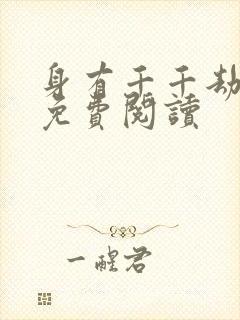 身有千千劫
免費閱讀
一醒君